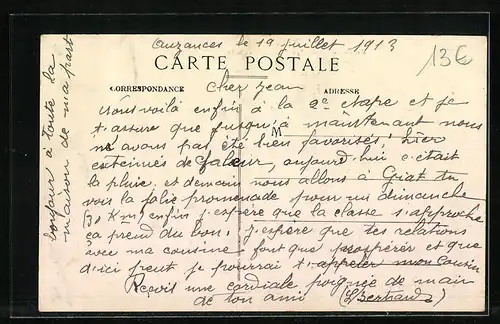 Auzances le 19 juillet 1913
13€
CARTE POSTALE
CORRESPONDANCE
ADRESSE
Cher Jean
Nous voilà enfin à la 2e étape et je
t'assure que jusqu'à maintenant nous
M
ne avons pas été bien favorisés, hier
exténués de chaleur, aujourd'hui c'était
la pluie, et demain nous allons à Giat tu
vois la jolie promenade pour un dimanche
Km) enfin j'espère que la classe s'approche
ça prend du bon. j'espère que tes relations
avec ma cousine font que prospérer et que
d'ici peut je pourrai t'appeler mon cousin
Reçoit une cordiale poignée de main
de ton ami Bertrand
bonjour à toute la
maison de ma part